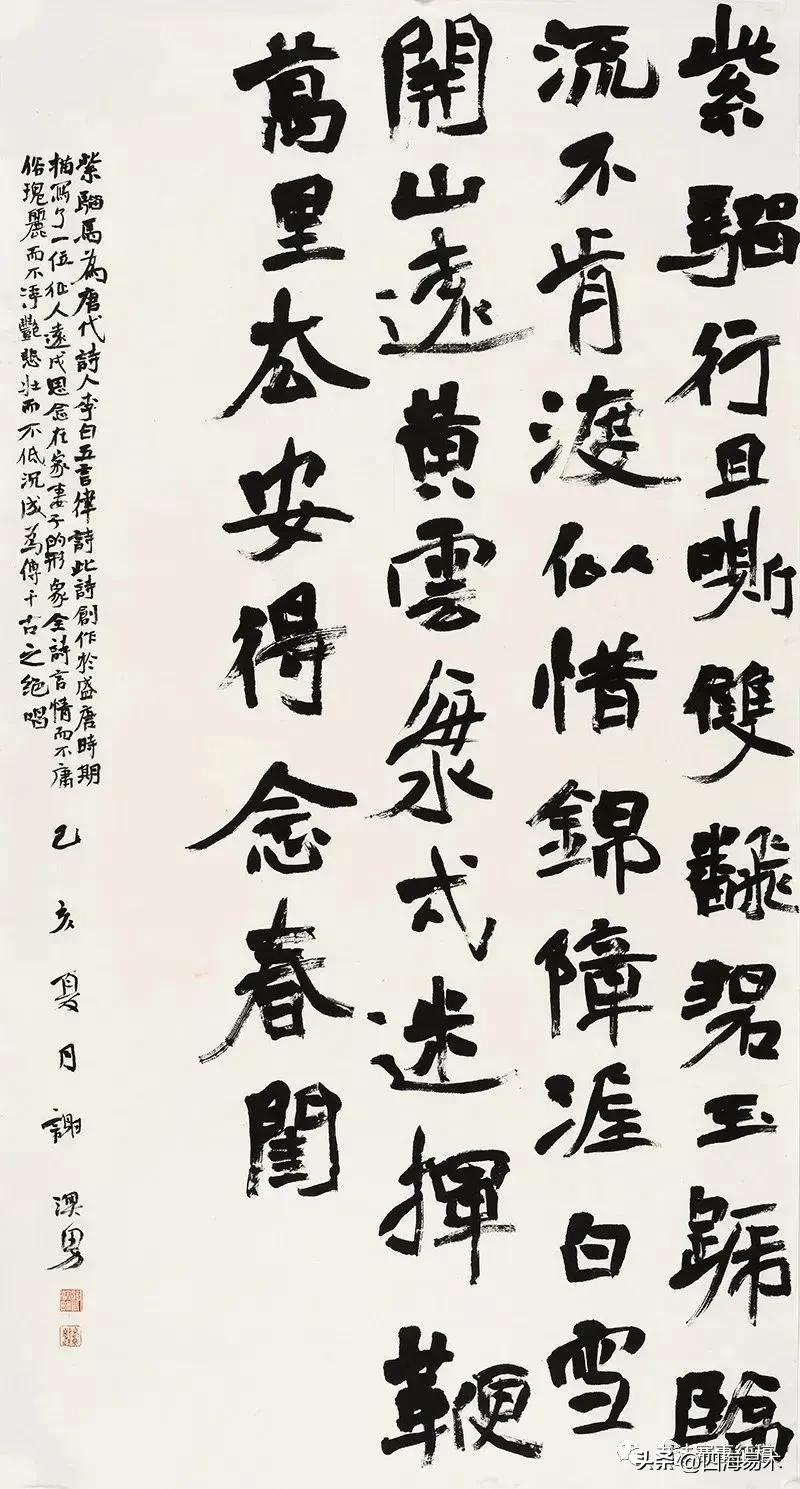 紫騮行且嘶雙飜碧玉蹏臨
流不肯渡似惜錦障埿白雪
開山遠黃雲海戍迷揮鞭
萬里去安得念春閨
紫騮馬為唐代詩人李白五言律詩此詩創作於盛唐時期
描寫了一位征人遠戍思念在家妻子的形象全詩言情而不庸
俗瑰麗而不浮豔悲壯而不低沉成為傳千古之絕唱
己亥夏月謝澳男
头条@四海易木